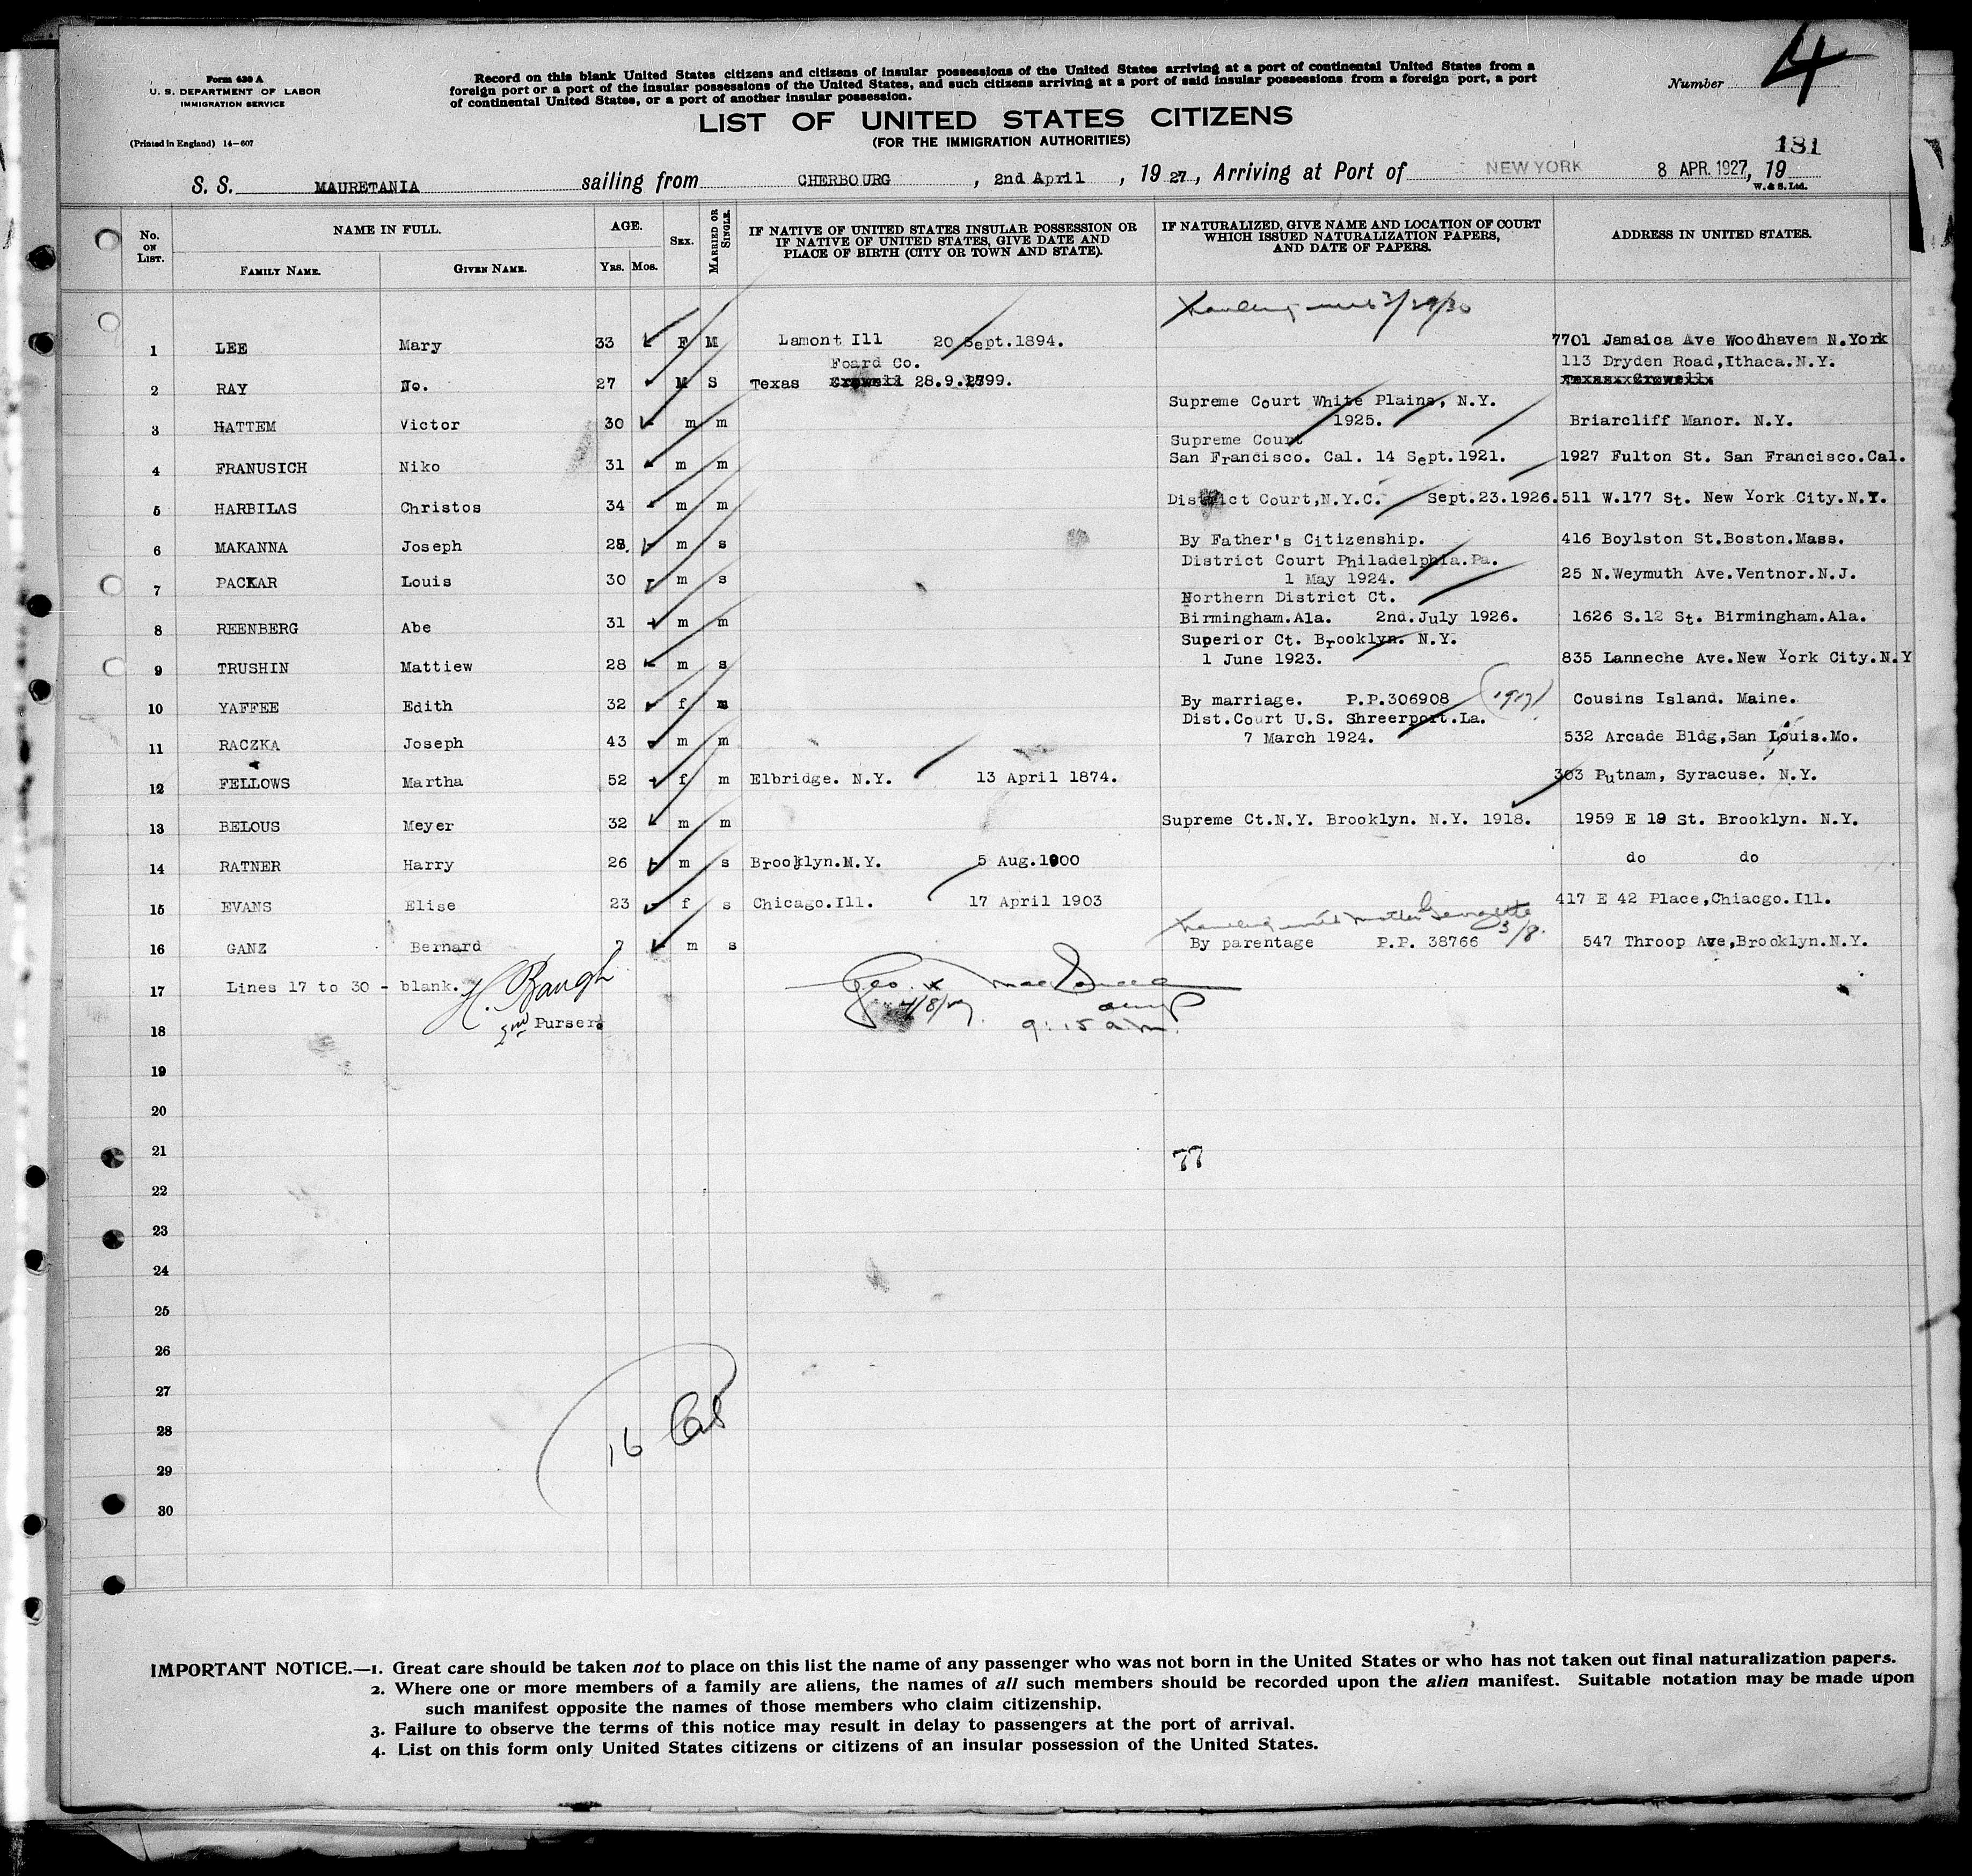 Form 630 A
U. S. DEPARTMENT OF LABOR
IMMIGRATION SERVICE
(Printed in England) 14-607
Record on this blank United States citizens and citizens of insular possessions of the United States arriving at a port of continental United States from a
foreign port or a port of the insular possessions of the United States, and such citizens arriving at a port of said insular possessions from a foreign port, a port
of continental United States, or a port of another insular possession.
Number 4
LIST OF UNITED STATES CITIZENS
(FOR THE IMMIGRATION AUTHORITIES)
181
S. S. MAURETANIA sailing from CHERBOURG, 2nd April, 1927, Arriving at Port of NEW YORK 8 APR. 1927, 19
W. & S. Ltd.
No. ON LIST. NAME IN FULL. AGE. SEX. MARRIED OR SINGLE. IF NATIVE OF UNITED STATES INSULAR POSSESSION OR IF NATIVE OF UNITED STATES, GIVE DATE AND PLACE OF BIRTH (CITY OR TOWN AND STATE). IF NATURALIZED, GIVE NAME AND LOCATION OF COURT WHICH ISSUED NATURALIZATION PAPERS, AND DATE OF PAPERS. ADDRESS IN UNITED STATES.
FAMILY NAME. GIVEN NAME. YRS. MOS.
1 LEE Mary 33 F M Lamont Ill 20 Sept.1894. 7701 Jamaica Ave Woodhavem N.York
Foard Co. 113 Dryden Road,Ithaca.N.Y.
2 RAY No. 27 M S Texas Crowell 28.9.1899. Texas Crowell
Supreme Court White Plains, N.Y.
3 HATTEM Victor 30 m m 1925. Briarcliff Manor. N.Y.
Supreme Court
4 FRANUSICH Niko 31 m m San Francisco. Cal. 14 Sept.1921. 1927 Fulton St. San Francisco.Cal.
5 HARBILAS Christos 34 m m District Court,N.Y.C. Sept.23.1926. 511 W.177 St. New York City.N.Y.
6 MAKANNA Joseph 28. m s By Father's Citizenship. 416 Boylston St.Boston.Mass.
District Court Philadelphia.Pa.
7 PACKAR Louis 30 m s 1 May 1924. 25 N.Weymuth Ave.Ventnor.N.J.
Northern District Ct.
8 REENBERG Abe 31 m m Birmingham.Ala. 2nd.July 1926. 1626 S.12 St. Birmingham.Ala.
Superior Ct. Brooklyn. N.Y.
9 TRUSHIN Mattiew 28 m s 1 June 1923. 835 Lanneche Ave.New York City.N.Y
10 YAFFEE Edith 32 f m By marriage. P.P.306908 (1917) Cousins Island. Maine.
Dist.Court U.S. Shreerport.La.
11 RACZKA Joseph 43 m m 7 March 1924. 532 Arcade Bldg,San Louis.Mo.
12 FELLOWS Martha 52 f m Elbridge. N.Y. 13 April 1874. 303 Putnam, Syracuse. N.Y.
13 BELOUS Meyer 32 m m Supreme Ct.N.Y. Brooklyn. N.Y. 1918. 1959 E 19 St. Brooklyn. N.Y.
14 RATNER Harry 26 m s Brooklyn.N.Y. 5 Aug.1900 do do
15 EVANS Elise 23 f s Chicago.Ill. 17 April 1903 417 E 42 Place,Chiacgo.Ill.
3/8.
16 GANZ Bernard 7 m s By parentage P.P. 38766 547 Throop Ave,Brooklyn.N.Y.
17 Lines 17 to 30 - blank. H. Baugh
18 2nd Purser.
9:15 a m.
19
20
21 77
22
23
24
25
26
27
28 16
29
30
IMPORTANT NOTICE.—1. Great care should be taken not to place on this list the name of any passenger who was not born in the United States or who has not taken out final naturalization papers.
2. Where one or more members of a family are aliens, the names of all such members should be recorded upon the alien manifest. Suitable notation may be made upon
such manifest opposite the names of those members who claim citizenship.
3. Failure to observe the terms of this notice may result in delay to passengers at the port of arrival.
4. List on this form only United States citizens or citizens of an insular possession of the United States.